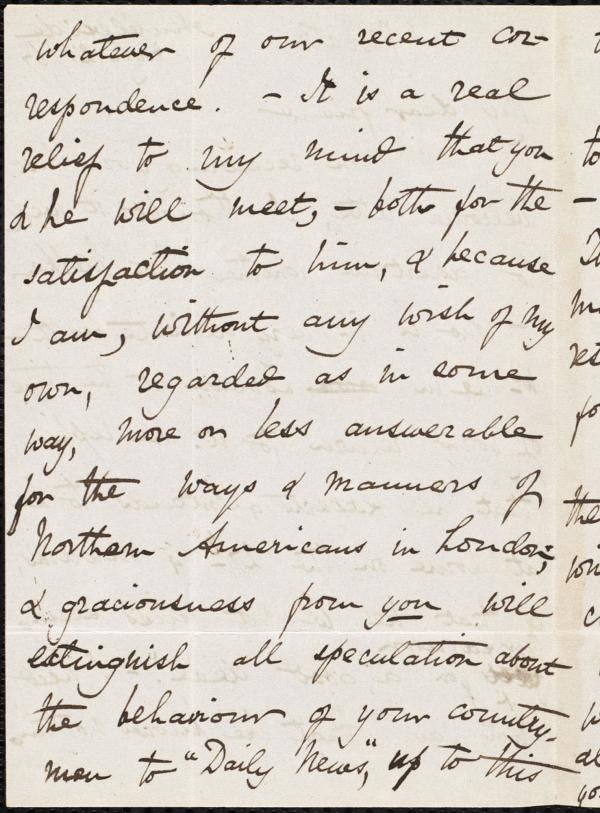 whatever of our recent cor-
respondence. - It is a real
relief to my mind that you
& he will meet, - both for the
satisfaction to him, & because
I am, without any wish of my
own, regarded as in some
way, more or less answerable
for the ways & manners of
Northern Americans in London;
& graciousness from you will
extinguish all speculation about
the behaviour of your country-
men to "Daily News", up to this